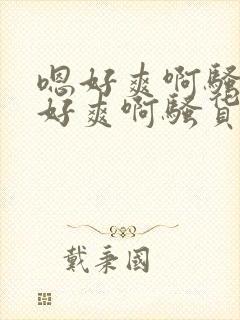 嗯好爽啊骚
好爽啊骚货
戴秉国